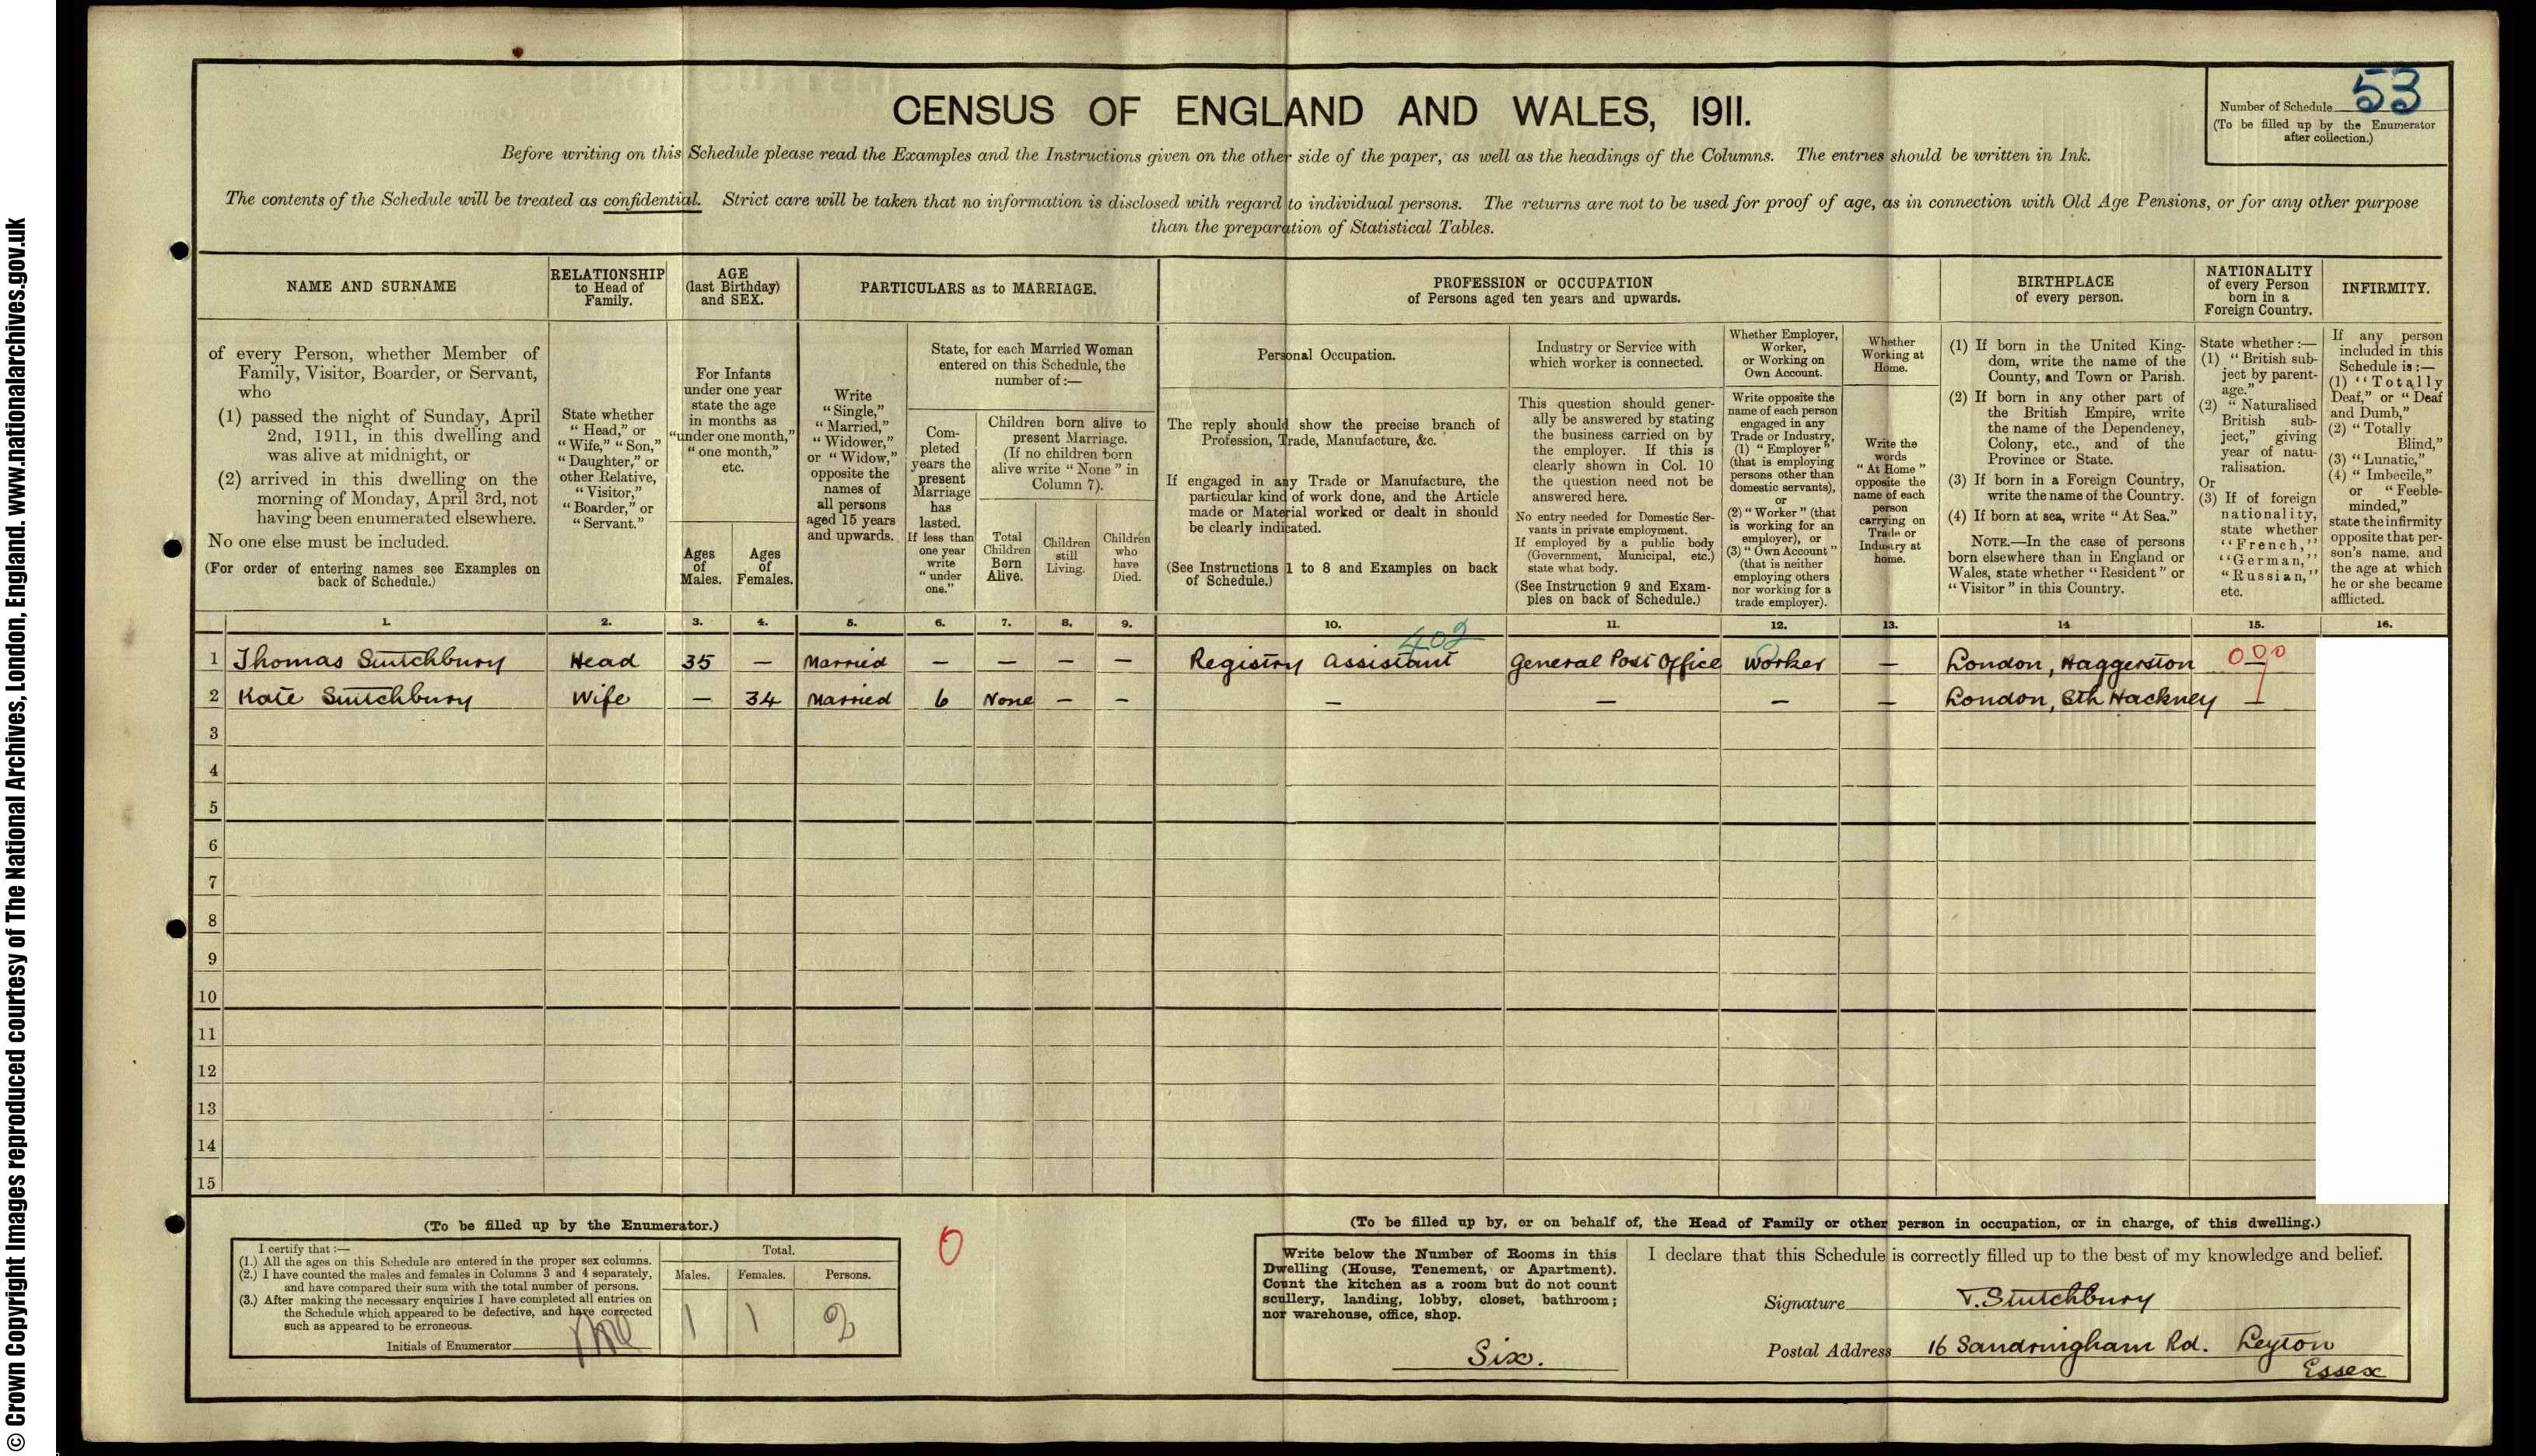 © Crown Copyright Images reproduced courtesy of The National Archives, London, England. www.nationalarchives.gov.uk
53
Number of Schedule
(To be filled up by the Enumerator
after collection.)
CENSUS OF ENGLAND AND WALES, 1911.
Before writing on this Schedule please read the Examples and the Instructions given on the other side of the paper, as well as the headings of the Columns. The entries should be written in Ink.
The contents of the Schedule will be treated as confidential. Strict care will be taken that no information is disclosed with regard to individual persons. The returns are not to be used for proof of age, as in connection with Old Age Pensions, or for any other purpose
than the preparation of Statistical Tables.
NAME AND SURNAME
of every Person, whether Member of
Family, Visitor, Boarder, or Servant,
who
(1) passed the night of Sunday, April
2nd, 1911, in this dwelling and
was alive at midnight, or
(2) arrived in this dwelling on the
morning of Monday, April 3rd, not
having been enumerated elsewhere.
No one else must be included.
(For order of entering names see Examples on
back of Schedule.)
RELATIONSHIP
to Head of
Family.
State whether
"Head," or
"Wife," "Son,"
"Daughter," or
other Relative,
"Visitor,"
"Boarder," or
"Servant."
AGE
(last Birthday)
and SEX.
For Infants
under one year
state the age
in months as
"under one month,"
"one month,"
etc.
Ages
of
Males.
Ages
of
Females.
PARTICULARS as to MARRIAGE.
Write
"Single,"
"Married,"
"Widower,"
or "Widow,"
opposite the
names of
all persons
aged 15 years
and upwards.
State, for each Married Woman
entered on this Schedule, the
number of:—
Com-
pleted
years the
present
Marriage
has
lasted.
If less than
one year
write
"under
one."
Children born alive to
present Marriage.
(If no children born
alive write "None" in
Column 7).
Total
Children
Born
Alive.
Children
still
Living.
Children
who
have
Died.
PROFESSION or OCCUPATION
of Persons aged ten years and upwards.
Personal Occupation.
The reply should show the precise branch of
Profession, Trade, Manufacture, &c.
If engaged in any Trade or Manufacture, the
particular kind of work done, and the Article
made or Material worked or dealt in should
be clearly indicated.
(See Instructions 1 to 8 and Examples on back
of Schedule.)
Industry or Service with
which worker is connected.
This question should gener-
ally be answered by stating
the business carried on by
the employer. If this is
clearly shown in Col. 10
the question need not be
answered here.
No entry needed for Domestic Ser-
vants in private employment.
If employed by a public body
(Government, Municipal, etc.)
state what body.
(See Instruction 9 and Exam-
ples on back of Schedule.)
Whether Employer,
Worker,
or Working on
Own Account.
Write opposite the
name of each person
engaged in any
Trade or Industry,
(1) "Employer"
(that is employing
persons other than
domestic servants),
or
(2) "Worker" (that
is working for an
employer), or
(3) "Own Account"
(that is neither
employing others
nor working for a
trade employer).
Whether
Working at
Home.
Write the
words
"At Home"
opposite the
name of each
person
carrying on
Trade or
Industry at
home.
BIRTHPLACE
of every person.
(1) If born in the United King-
dom, write the name of the
County, and Town or Parish.
(2) If born in any other part of
the British Empire, write
the name of the Dependency,
Colony, etc., and of the
Province or State.
(3) If born in a Foreign Country,
write the name of the Country.
(4) If born at sea, write "At Sea."
NOTE.—In the case of persons
born elsewhere than in England or
Wales, state whether "Resident" or
"Visitor" in this Country.
NATIONALITY
of every Person
born in a
Foreign Country.
State whether:—
(1) "British sub-
ject by parent-
age."
(2) "Naturalised
British sub-
ject," giving
year of natu-
ralisation.
Or
(3) If of foreign
nationality,
state whether
"French,"
"German,"
"Russian,"
etc.
INFIRMITY.
If any person
included in this
Schedule is:—
(1) "Totally
Deaf," or "Deaf
and Dumb,"
(2) "Totally
Blind,"
(3) "Lunatic,"
(4) "Imbecile,"
or "Feeble-
minded,"
state the infirmity
opposite that per-
son's name, and
the age at which
he or she became
afflicted.
1. 2. 3. 4. 5. 6. 7. 8. 9. 10. 11. 12. 13. 14 15. 16.
402
1 Thomas Stutchbury Head 35 — Married — — — — Registry Assistant General Post Office Worker — London, Haggerston — 000
2 Kate Stutchbury Wife — 34 Married 6 None — — — — — — London, Sth Hackney —
3
4
5
6
7
8
9
10
11
12
13
14
15
(To be filled up by the Enumerator.)
I certify that:—
(1.) All the ages on this Schedule are entered in the proper sex columns.
(2.) I have counted the males and females in Columns 3 and 4 separately,
and have compared their sum with the total number of persons.
(3.) After making the necessary enquiries I have completed all entries on
the Schedule which appeared to be defective, and have corrected
such as appeared to be erroneous.
Initials of Enumerator
Total.
Males. Females. Persons.
1 1 2
0
(To be filled up by, or on behalf of, the Head of Family or other person in occupation, or in charge, of this dwelling.)
Write below the Number of Rooms in this
Dwelling (House, Tenement, or Apartment).
Count the kitchen as a room but do not count
scullery, landing, lobby, closet, bathroom;
nor warehouse, office, shop.
Six.
I declare that this Schedule is correctly filled up to the best of my knowledge and belief.
Signature T. Stutchbury
Postal Address 16 Sandringham Rd. Leyton
Essex